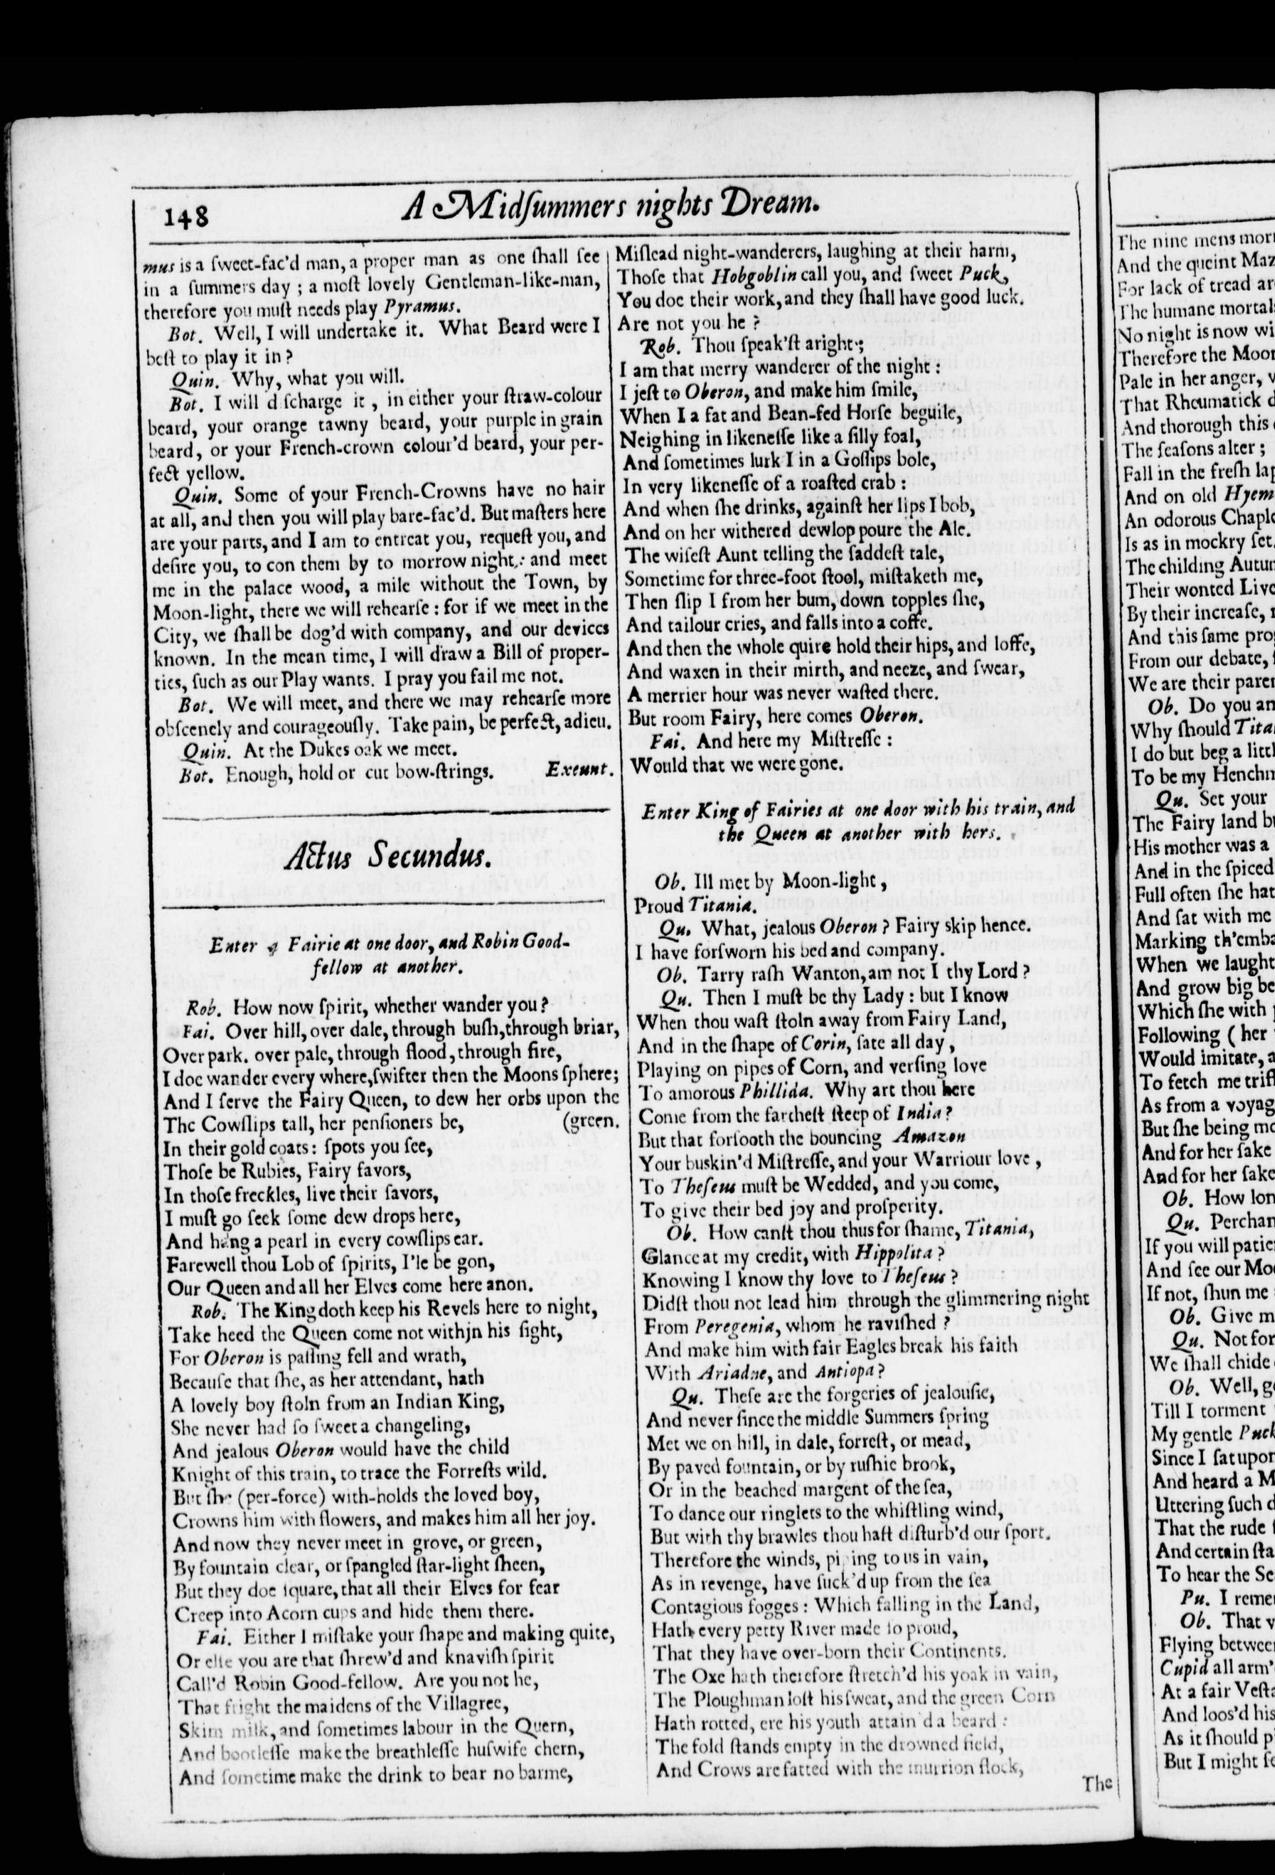 148
A Midſummers nights Dream.
mus is a ſweet-fac'd man, a proper man as one ſhall ſee
in a ſummers day ; a moſt lovely Gentleman-like-man,
therefore you muſt needs play Pyramus.
Bot. Well, I will undertake it. What Beard were I
beſt to play it in ?
Quin. Why, what you will.
Bot. I will d ſcharge it , in either your ſtraw-colour
beard, your orange tawny beard, your purple in grain
beard, or your French-crown colour'd beard, your per-
fect yellow.
Quin. Some of your French-Crowns have no hair
at all, and then you will play bare-fac'd. But maſters here
are your parts, and I am to entreat you, requeſt you, and
deſire you, to con them by to morrow night : and meet
me in the palace wood, a mile without the Town, by
Moon-light, there we will rehearſe : for if we meet in the
City, we ſhall be dog'd with company, and our devices
known. In the mean time, I will draw a Bill of proper-
ties, ſuch as our Play wants. I pray you fail me not.
Bot. We will meet, and there we may rehearſe more
obſcenely and courageouſly. Take pain, be perfect, adieu.
Quin. At the Dukes oak we meet.
Bot. Enough, hold or cut bow-ſtrings. Exeunt.
Actus Secundus.
Enter a Fairie at one door, and Robin Good-
fellow at another.
Rob. How now ſpirit, whether wander you ?
Fai. Over hill, over dale, through buſh, through briar,
Over park. over pale, through flood, through fire,
I doe wander every where, ſwifter then the Moons ſphere;
And I ſerve the Fairy Queen, to dew her orbs upon the
The Cowſlips tall, her penſioners be, (green.
In their gold coats: ſpots you ſee,
Thoſe be Rubies, Fairy favors,
In thoſe freckles, live their ſavors,
I muſt go ſeek ſome dew drops here,
And hang a pearl in every cowſlips ear.
Farewell thou Lob of ſpirits, I'le be gon,
Our Queen and all her Elves come here anon.
Rob. The King doth keep his Revels here to night,
Take heed the Queen come not within his ſight,
For Oberon is paſſing fell and wrath,
Becauſe that ſhe, as her attendant, hath
A lovely boy ſtoln from an Indian King,
She never had ſo ſweet a changeling,
And jealous Oberon would have the child
Knight of this train, to trace the Forreſts wild.
But ſhe (per-force) with-holds the loved boy,
Crowns him with flowers, and makes him all her joy.
And now they never meet in grove, or green,
By fountain clear, or ſpangled ſtar-light ſheen,
But they doe ſquare, that all their Elves for fear
Creep into Acorn cups and hide them there.
Fai. Either I miſtake your ſhape and making quite,
Or elſe you are that ſhrew'd and knaviſh ſpirit
Call'd Robin Good-fellow. Are you not he,
That fright the maidens of the Villagree,
Skim milk, and ſometimes labour in the Quern,
And bootleſſe make the breathleſſe huſwife chern,
And ſometime make the drink to bear no barme,
Miſlead night-wanderers, laughing at their harm,
Thoſe that Hobgoblin call you, and ſweet Puck,
You doe their work, and they ſhall have good luck.
Are not you he ?
Rob. Thou ſpeak'ſt aright ;
I am that merry wanderer of the night :
I jeſt to Oberon, and make him ſmile,
When I a fat and Bean-fed Horſe beguile,
Neighing in likeneſſe like a ſilly foal,
And ſometimes lurk I in a Goſſips bole,
In very likeneſſe of a roaſted crab :
And when ſhe drinks, againſt her lips I bob,
And on her withered dewlop poure the Ale.
The wiſeſt Aunt telling the ſaddeſt tale,
Sometime for three-foot ſtool, miſtaketh me,
Then ſlip I from her bum, down topples ſhe,
And tailour cries, and falls into a coffe.
And then the whole quire hold their hips, and loffe,
And waxen in their mirth, and neeze, and ſwear,
A merrier hour was never waſted there.
But room Fairy, here comes Oberon.
Fai. And here my Miſtreſſe :
Would that we were gone.
Enter King of Fairies at one door with his train, and
the Queen at another with hers.
Ob. Ill met by Moon-light ,
Proud Titania.
Qu. What, jealous Oberon ? Fairy skip hence.
I have forſworn his bed and company.
Ob. Tarry raſh Wanton, am not I thy Lord ?
Qu. Then I muſt be thy Lady : but I know
When thou waſt ſtoln away from Fairy Land,
And in the ſhape of Corin, ſate all day ,
Playing on pipes of Corn, and verſing love
To amorous Phillida. Why art thou here
Come from the fartheſt ſteep of India ?
But that forſooth the bouncing Amazon
Your buskin'd Miſtreſſe, and your Warriour love ,
To Theſeus muſt be Wedded, and you come,
To give their bed joy and proſperity.
Ob. How canſt thou thus for ſhame, Titania,
Glance at my credit, with Hippolita ?
Knowing I know thy love to Theſeus ?
Didſt thou not lead him through the glimmering night
From Peregenia, whom he raviſhed ?
And make him with fair Eagles break his faith
With Ariadne, and Antiopa ?
Qu. Theſe are the forgeries of jealouſie,
And never ſince the middle Summers ſpring
Met we on hill, in dale, forreſt, or mead,
By paved fountain, or by ruſhie brook,
Or in the beached margent of the ſea,
To dance our ringlets to the whiſtling wind,
But with thy brawles thou haſt diſturb'd our ſport.
Therefore the winds, piping to us in vain,
As in revenge, have ſuck'd up from the ſea
Contagious fogges : Which falling in the Land,
Hath every petty River made ſo proud,
That they have over-born their Continents.
The Oxe hath therefore ſtretch'd his yoak in vain,
The Ploughman loſt his ſweat, and the green Corn
Hath rotted, ere his youth attain'd a beard :
The fold ſtands empty in the drowned field,
And Crows are fatted with the murrion flock,
The
The nine mens mor
And the queint Maz
For lack of tread ar
The humane mortal
No night is now wi
Therefore the Moon
Pale in her anger,
That Rheumatick d
And thorough this
The ſeaſons alter ;
Fall in the freſh lap
And on old Hyem
An odorous Chaple
Is as in mockry ſet.
The childing Autum
Their wonted Live
By their increaſe,
And this ſame pro
From our debate,
We are their paren
Ob. Do you am
Why ſhould Tita
I do but beg a littl
To be my Henchm
Qu. Set your
The Fairy land bu
His mother was a
And in the ſpiced
Full often ſhe hat
And ſat with me
Marking th'emba
When we laught
And grow big be
Which ſhe with
Following ( her
Would imitate, a
To fetch me trifl
As from a voyag
But ſhe being mo
And for her ſake
And for her ſake
Ob. How lon
Qu. Perchan
If you will patie
And ſee our Moo
If not, ſhun me
Ob. Give m
Qu. Not for
We ſhall chide
Ob. Well, g
Till I torment
My gentle Puck
Since I ſat upon
And heard a M
Uttering ſuch d
That the rude
And certain ſta
To hear the Se
Pu. I reme
Ob. That v
Flying betwee
Cupid all arm'
At a fair Veſta
And loos'd his
As it ſhould p
But I might ſe